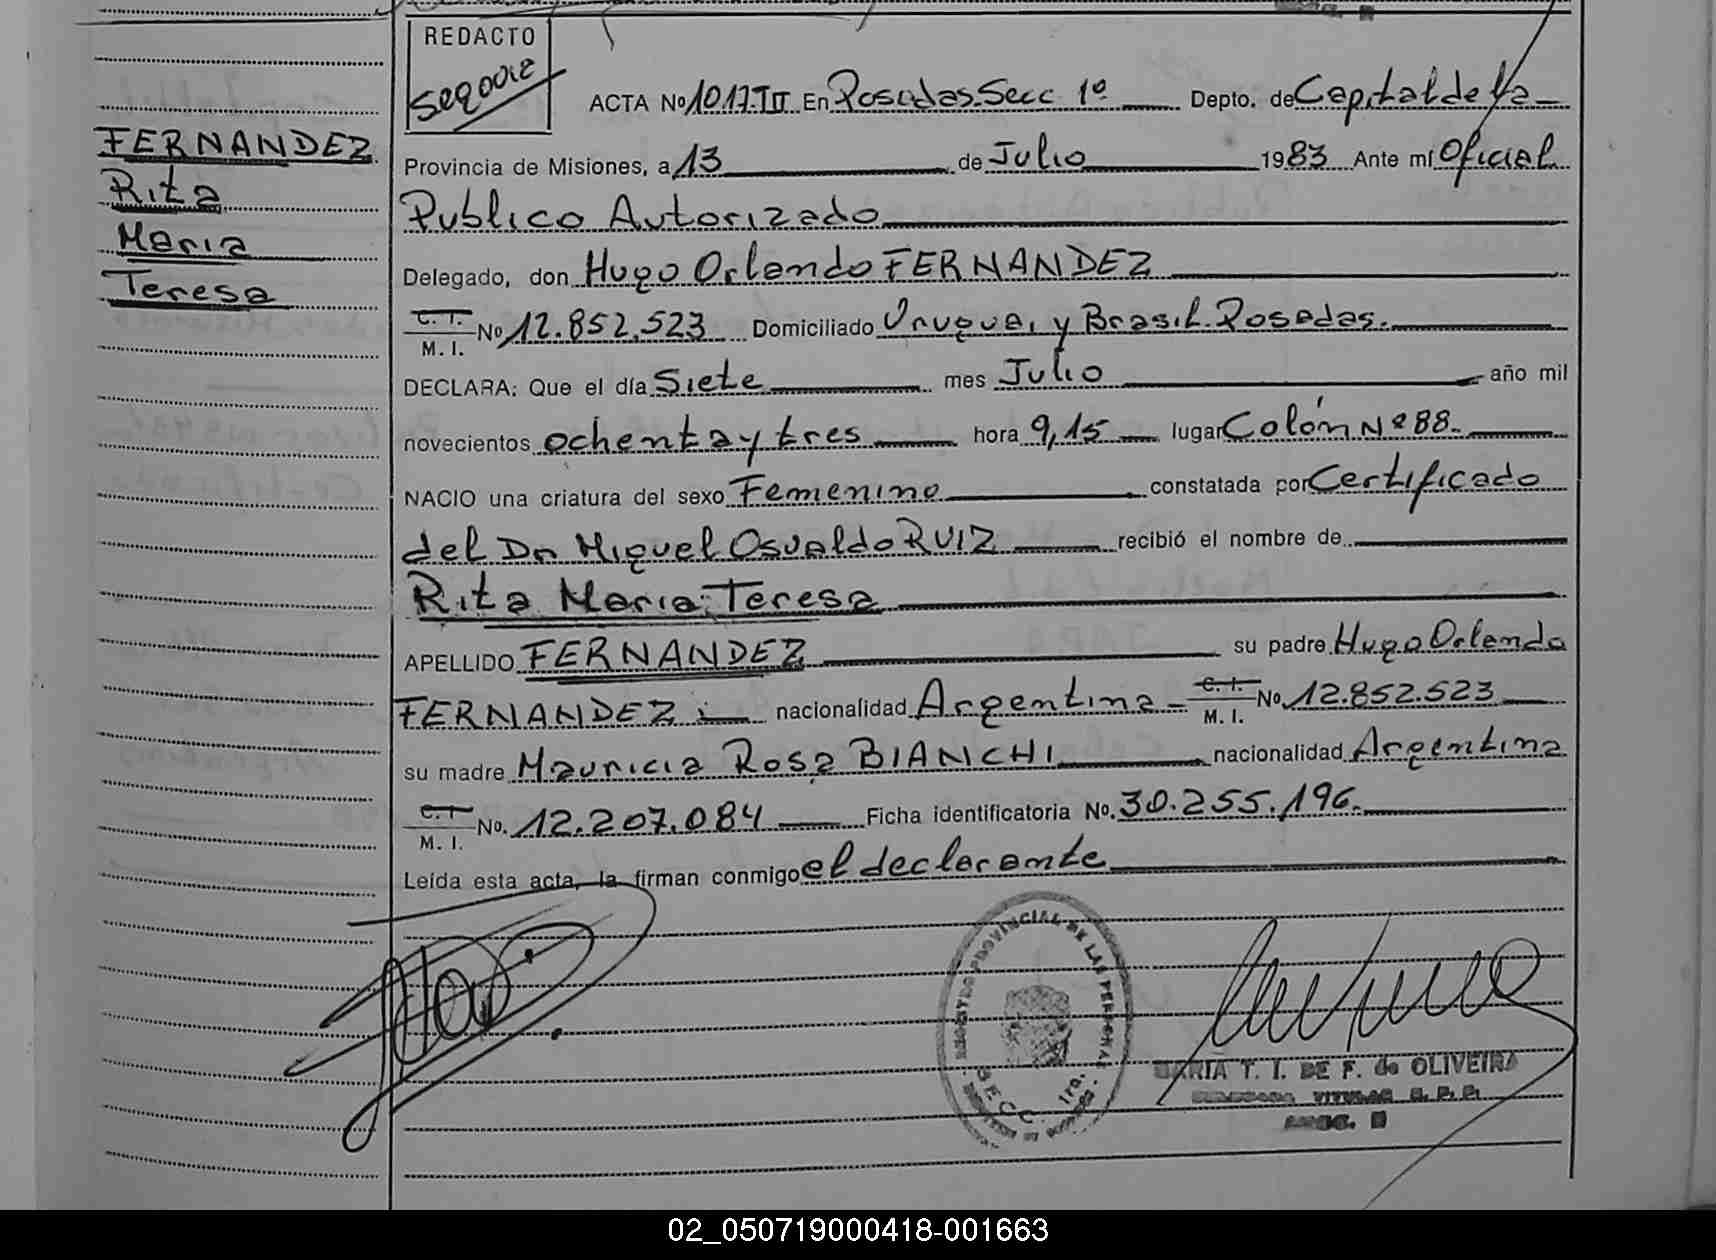 REDACTO
ACTA Nº 1017.III En Posadas. Secc 1º Depto. de Capital de la
FERNANDEZ
Rita
Maria
Teresa
Provincia de Misiones, a 13 de Julio 1983 Ante mí Oficial
Publico Autorizado
Delegado, don Hugo Orlando FERNANDEZ
C. I.
M. I. Nº 12.852.523 Domiciliado Uruguai y Brasil. Posadas.
DECLARA: Que el día Siete mes Julio año mil
novecientos ochenta y tres hora 9,15 lugar Colón Nº 88.
NACIO una criatura del sexo Femenino constatada por Certificado
del Dr Miguel Osvaldo RUIZ recibió el nombre de
Rita Maria Teresa
APELLIDO FERNANDEZ su padre Hugo Orlando
FERNANDEZ nacionalidad Argentina C. I.
M. I. Nº 12.852.523
su madre Mauricia Rosa BIANCHI nacionalidad Argentina
C. I.
M. I. Nº. 12.207.084 Ficha identificatoria Nº. 30.255.196.
Leída esta acta, la firman conmigo el declarante
REGISTRO PROVINCIAL DE LAS PERSONAS
SECC. 1ra.
MARIA T. I. DE F. de OLIVEIRA
02_050719000418-001663